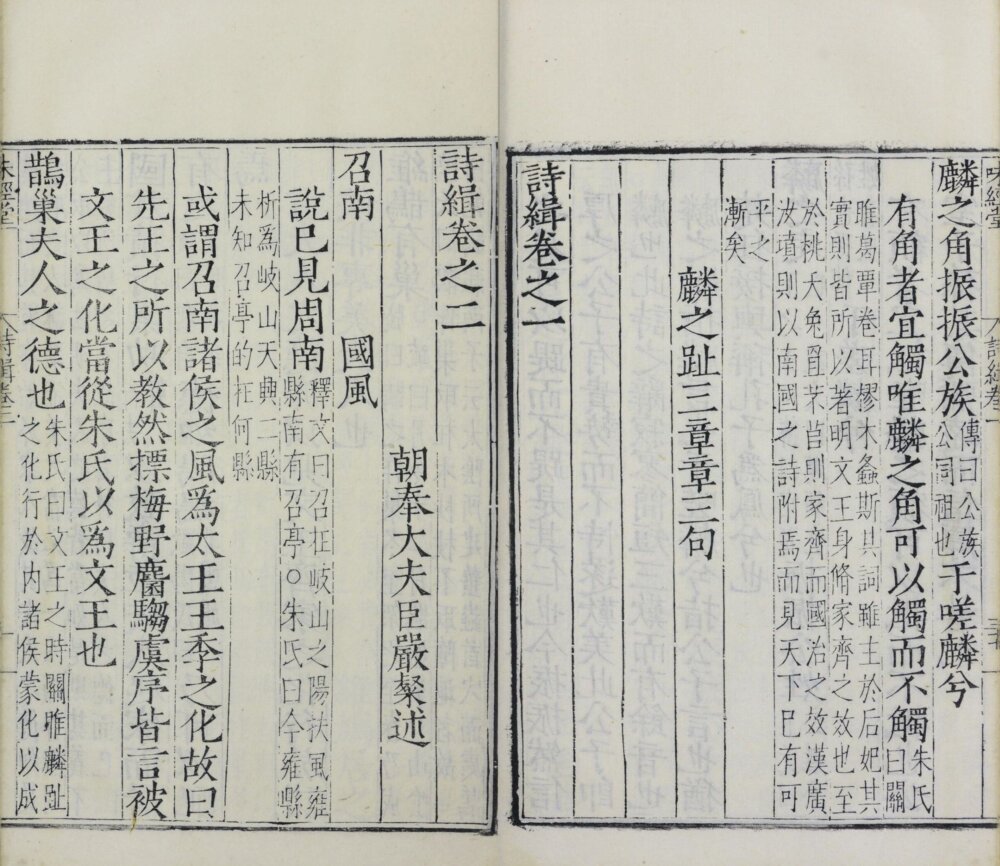 味經堂
詩緝卷一
麟之角振振公族傳曰公族公同祖也于嗟麟兮
有角者宜觸唯麟之角可以觸而不觸朱氏曰關
雎葛覃卷耳樛木螽斯其詞雖主於后妃其
實則皆所以著明文王身脩家齊之效也至
於桃夭兔罝芣苢則家齊而國治之效漢廣
汝墳則以南國之詩附焉而見天下已有可
平之
漸矣
麟之趾三章章三句
詩緝卷之一
詩緝卷之二
朝奉大夫臣嚴粲述
召南 國風
說已見周南釋文曰召在岐山之陽扶風雍縣南有召亭○朱氏曰今雍縣
析爲岐山天興二縣
未知召亭的在何縣
或謂召南諸侯之風爲太王王季之化故曰
先王之所以教然摽梅野麕騶虞序皆言被
文王之化當從朱氏以爲文王也
鵲巢夫人之德也朱氏曰文王之時關雎麟趾之化行於内諸侯蒙化以成
味經堂
詩緝卷二
一